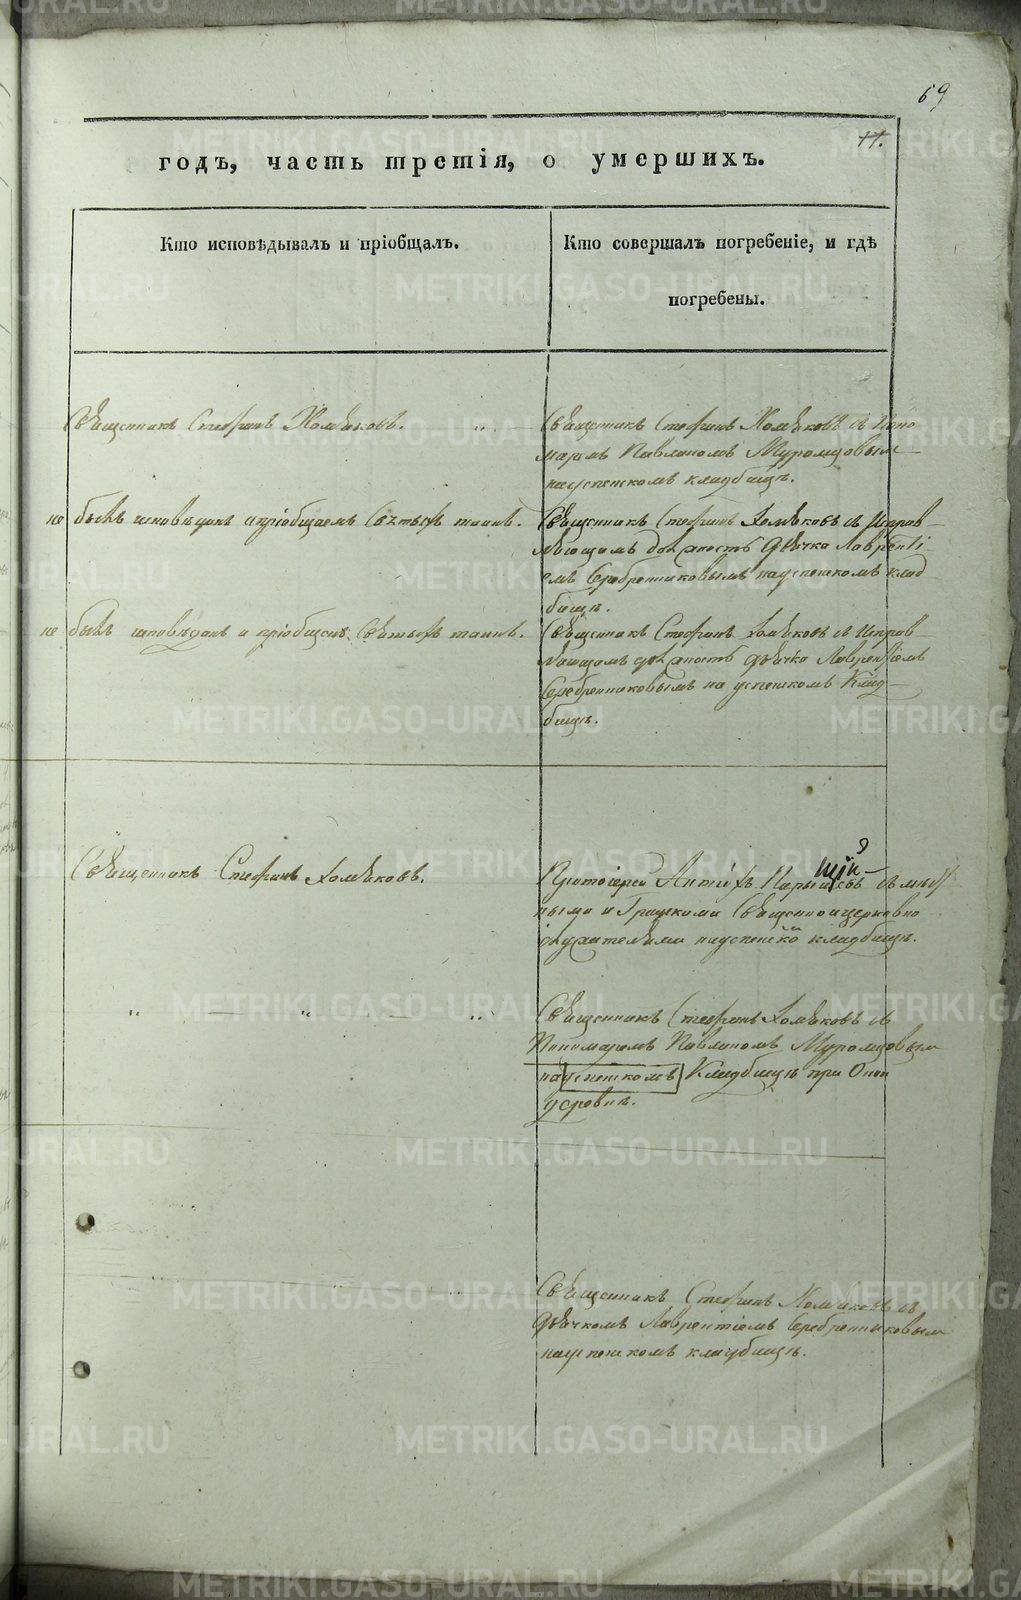 69
11.
годъ, часть третія, о умершихъ.
Кто исповѣдывалъ и пріобщалъ.
Кто совершалъ погребеніе, и гдѣ
погребены.
Священникъ Стефанъ Хомяковъ.
Священникъ Стефанъ Хомяковъ съ Поно
маремъ Павлиномъ Муромцовым
на успенскомъ кладбищѣ.
не былъ исповѣданъ и пріобщаемъ Святыхъ таинъ.
Священникъ Стефанъ Хомяковъ съ Исправ
ляющимъ должность дьячка Лавренті
емъ Серебренниковымъ на успенскомъ клад
бищѣ.
не былъ исповѣданъ и пріобщенъ Святыхъ таинъ.
Священникъ Стефанъ Хомяковъ съ Исправ
ляющимъ должность дьячка Лаврентіемъ
Серебренниковымъ на успенском Клад
бищѣ.
Священникъ Стефанъ Хомяковъ.
Протоіерей Антіпъ
и Градскими Священноицерковно
служителями на успенско кладбищѣ.
Священникъ Стефанъ Хомяковъ съ
Пономаремъ Павлиномъ Муромцовым
на успенскомъ Кладбищѣ при
церквиѣ.
Священникъ Стефанъ Хомяковъ съ
дьячкомъ Лаврентіемъ Серебренниковым
на успенскомъ кладбищѣ.
METRIKI.GASO-URAL.RU